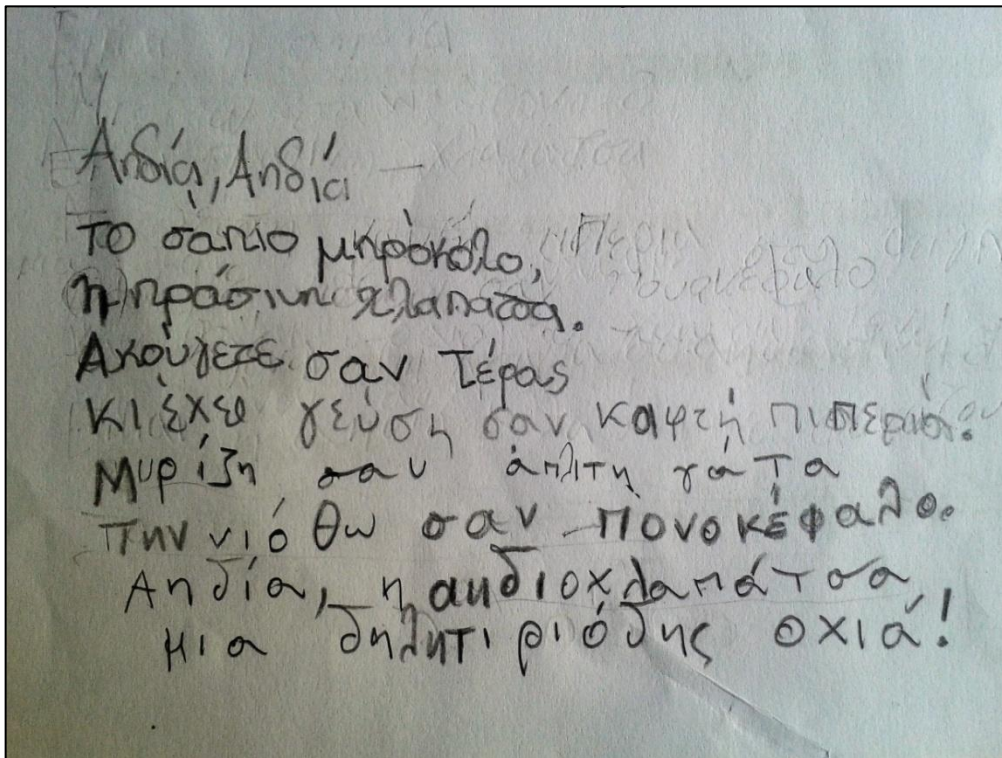 Αηδία, Αηδία
το σάπιο μπρόκολο,
η πράσινη χλαπατσα.
Ακούγετε σαν τέρας
κι έχει γεύση σαν καφτή πιπεριά.
Μυρίζη σαν άπλιτη γάτα
την νιόθω σαν πονοκέφαλο.
Αηδία, η αηδιοχλαπάτσα
μια δηλητιριόδης οχιά!